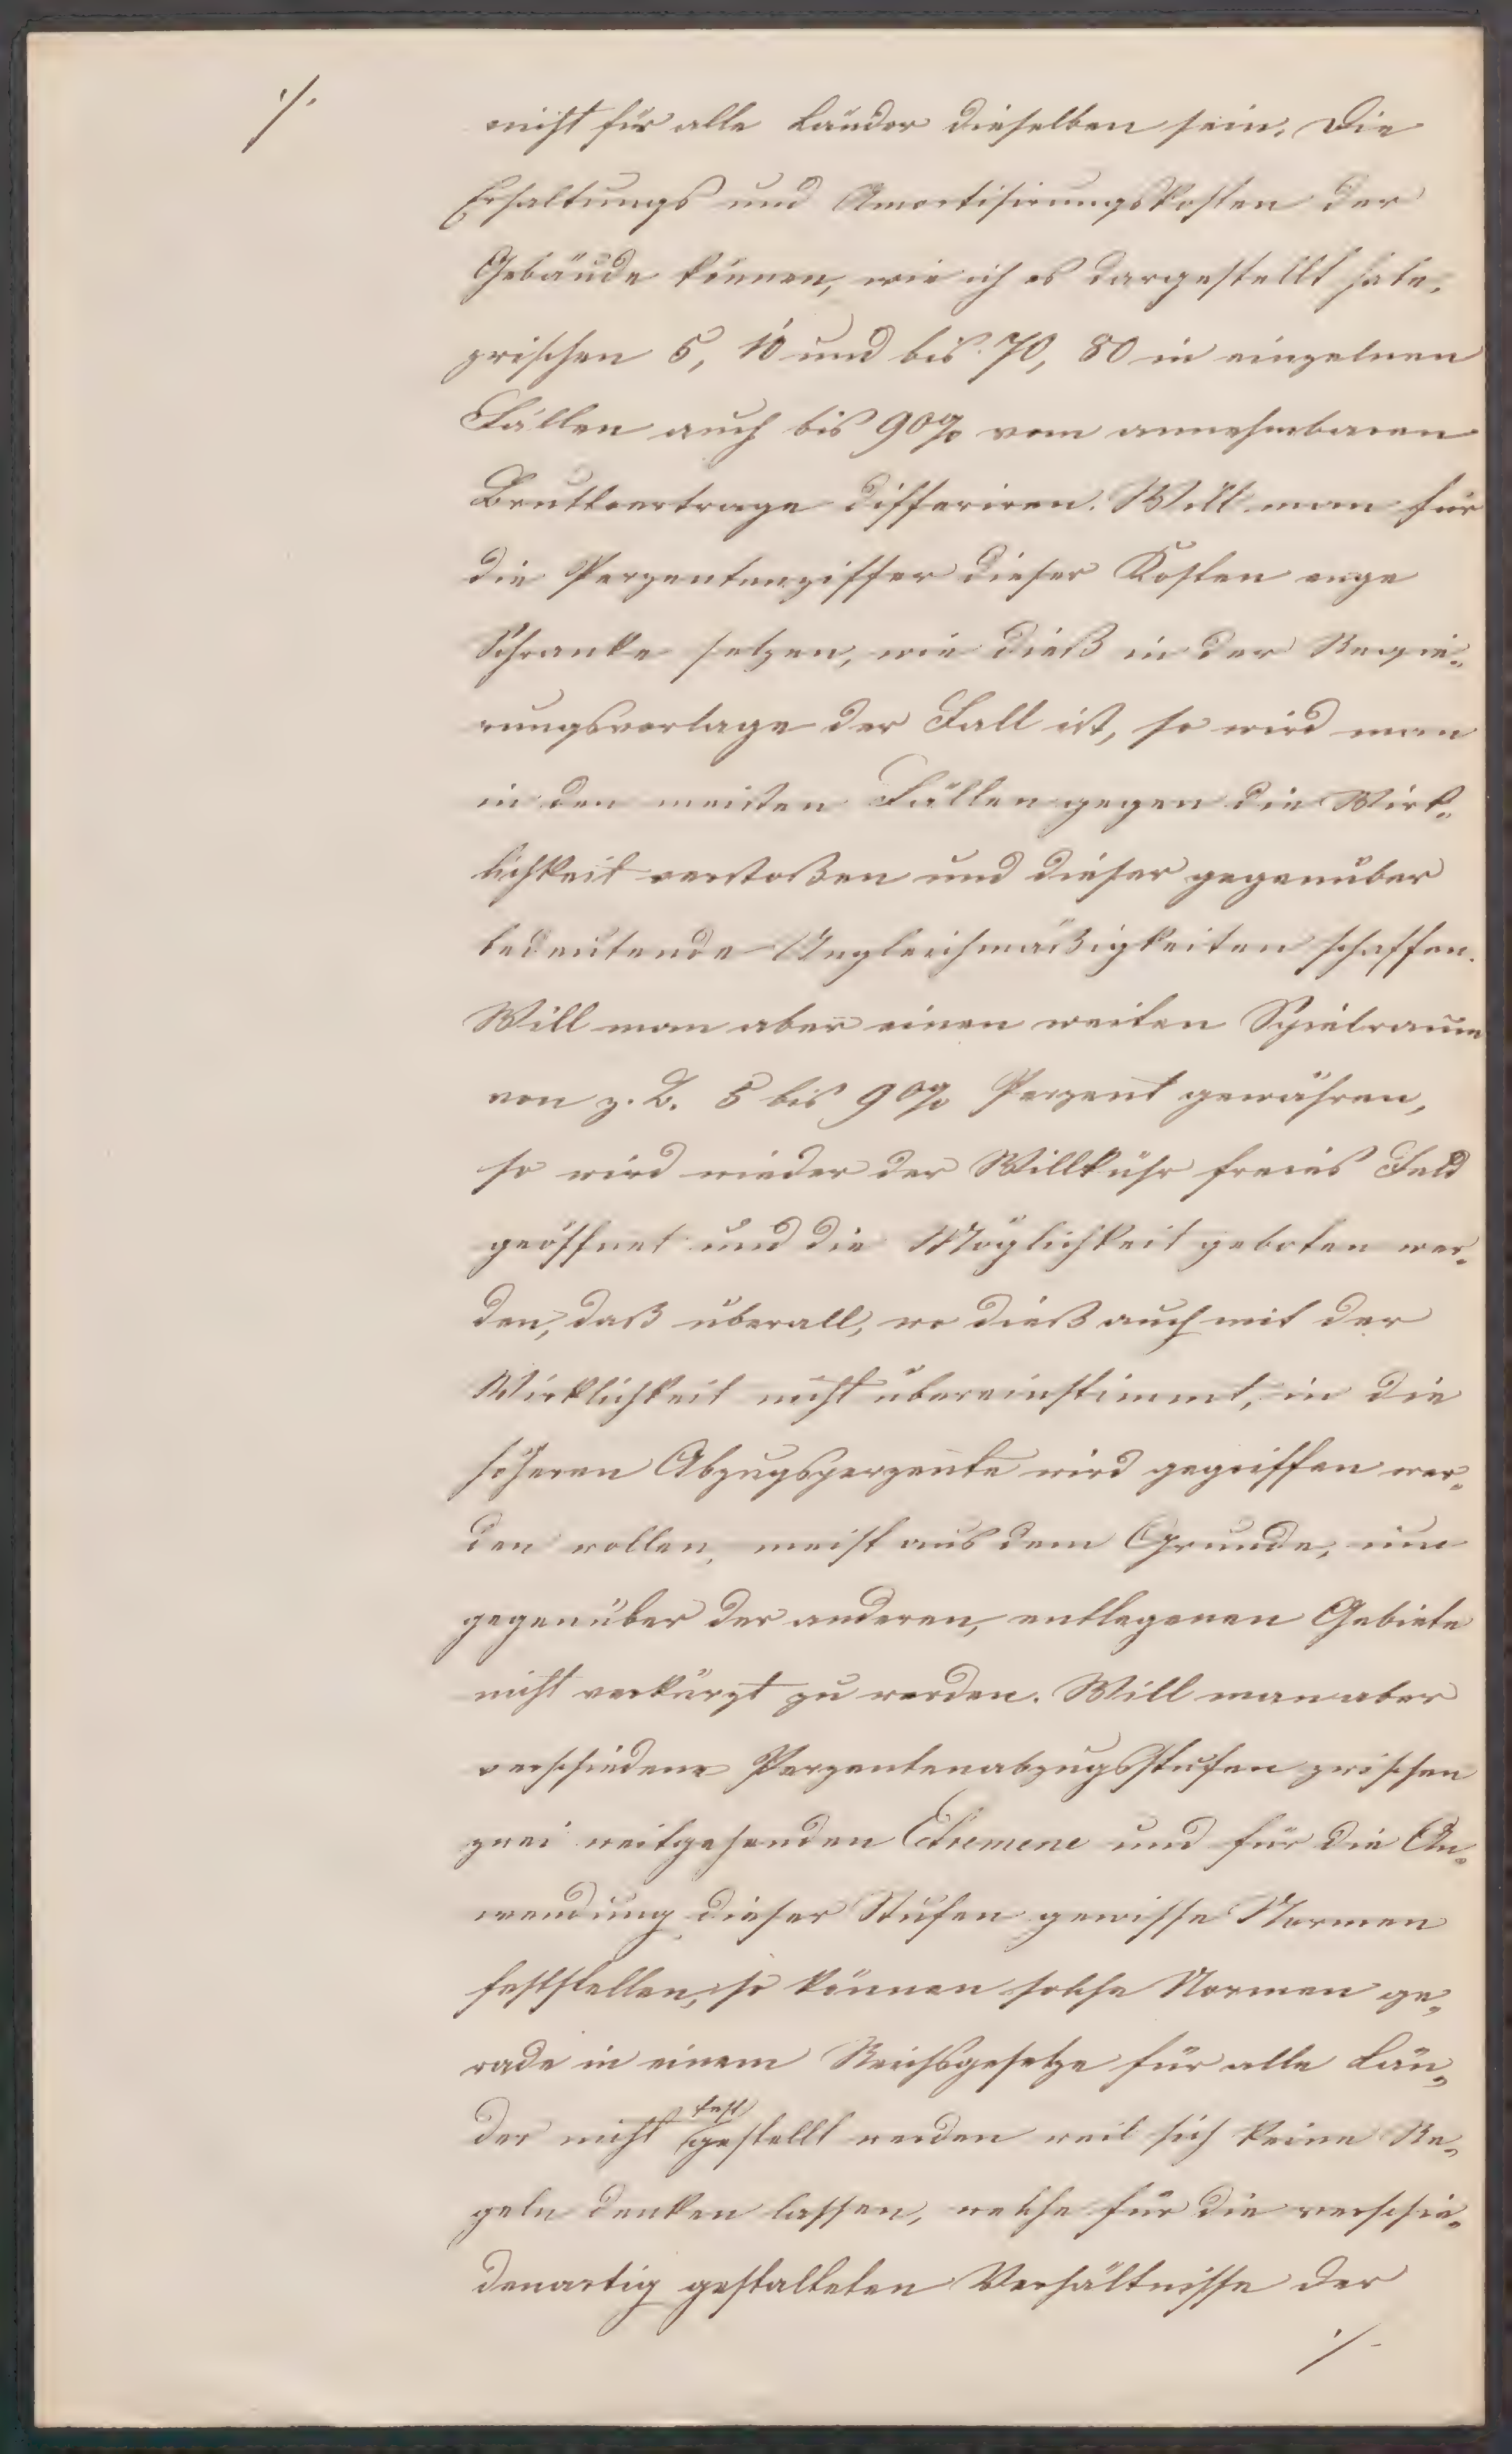 ./.
nicht für alle Länder dieselben sein. Die
Erhaltungs und Amortisirungskosten der
Gebäude können, wie ich es dargestellt habe,
zwischen 5, 10 und bis 70, 80 in einzelnen
Fällen auch bis 90% vom annehmbaren
Bruttoertrage differiren. Will man für
die Perzentenziffer dieser Kosten enge
Schranke setzen, wie dieß in der Regie„
rungsvorlage der Fall ist, so wird man
in den meisten Fällen gegen die Wirk„
lichkeit verstoßen und dieser gegenüber
bedeutende Ungleichmäßigkeiten schaffen.
Will man aber einen weiten Spielraum
von z. B. 5 bis 90% Perzent gewähren,
so wird wieder der Willkühr freies Feld
geöffnet und die Möglichkeit geboten wer„
den, daß überall, wo dieß auch mit der
Wirklichkeit nicht übereinstimmt, in die
höheren Abzugsperzente wird gegriffen wer„
den wollen, meist aus dem Grunde, um
gegenüber der anderen, entlegenen Gebiete
nicht verkürzt zu werden. Will man aber
verschiedene Perzentenabzugsstufen zwischen
zwei weitgehenden Extremene und für die An„
wendung dieser Stufen gewisse Normen
feststellen, so können solche Normen ge„
rade in einem Reichsgesetze für alle Län„
der nicht festgestellt werden weil sich keine Re„
geln denken lassen, welche für die verschie„
denartig gestalteten Verhältnisse der
./.